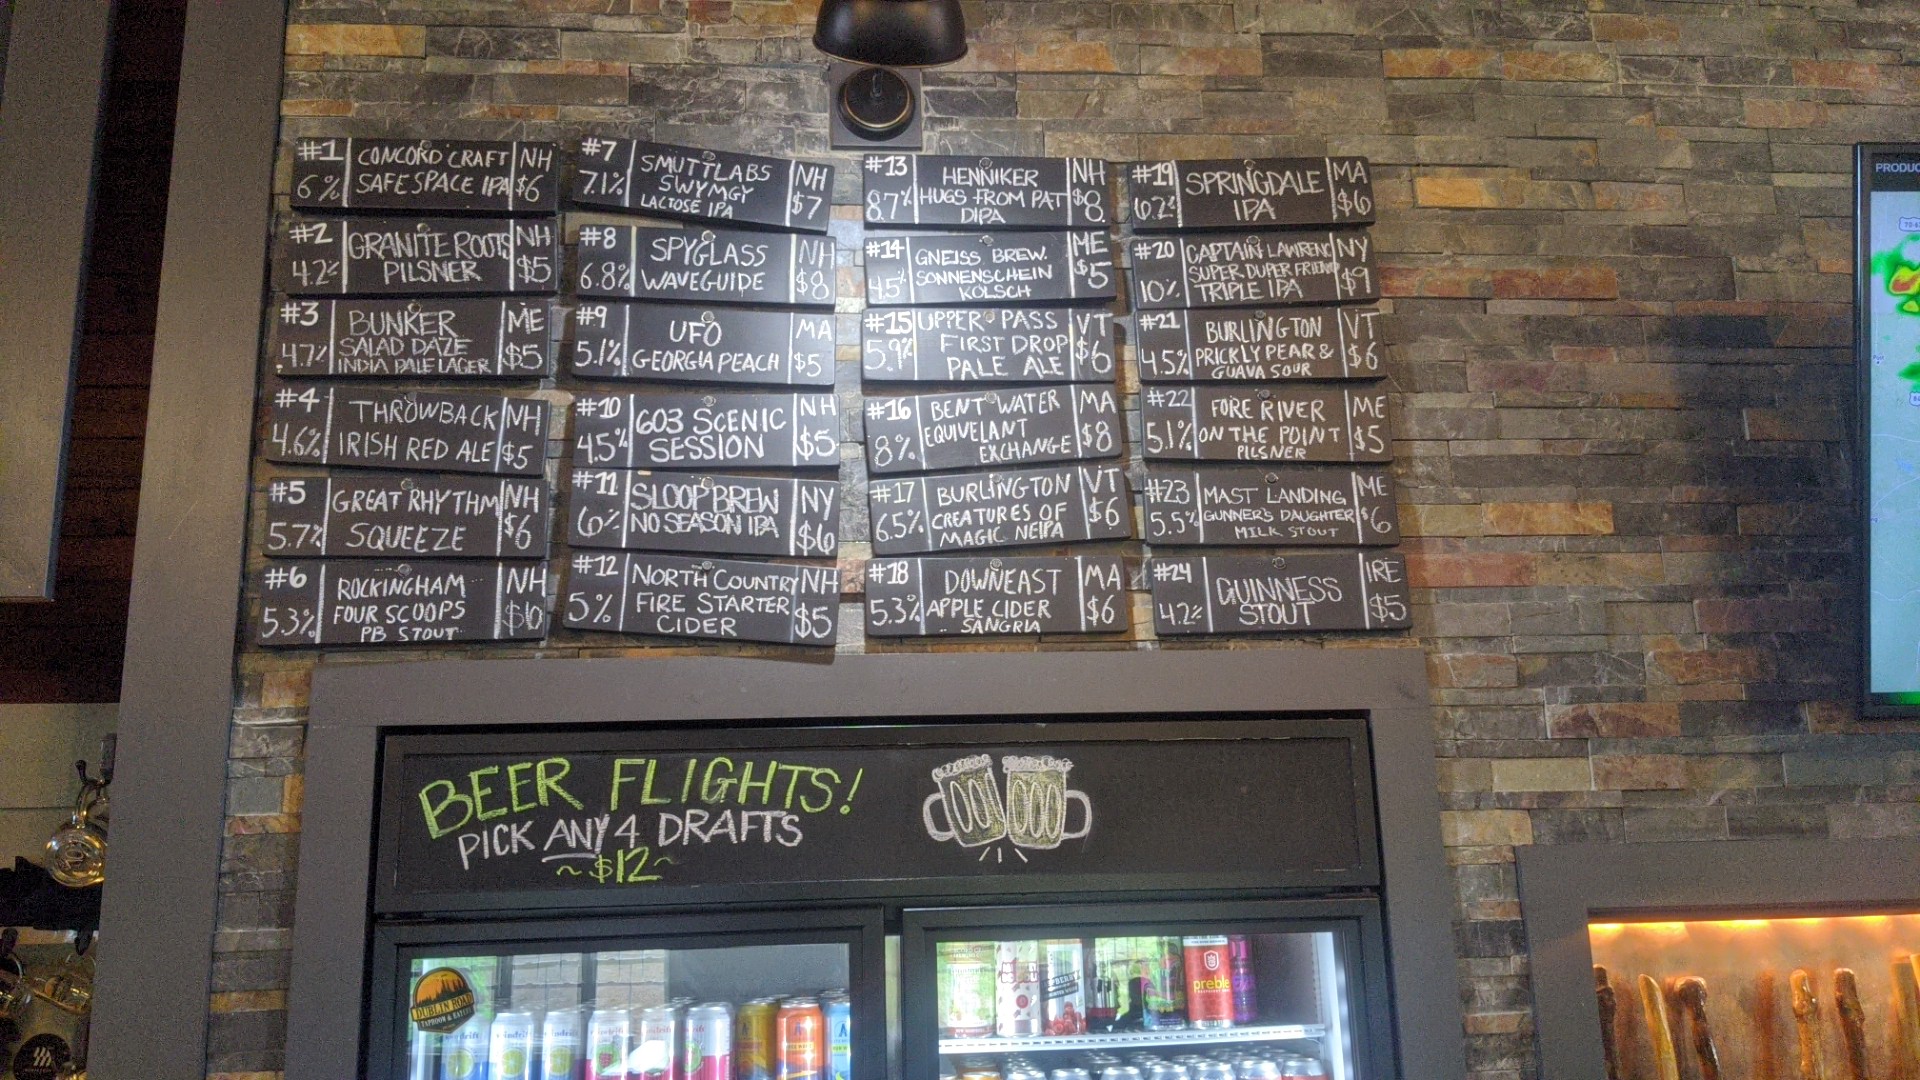 #1 CONCORD CRAFT NH
6% SAFE SPACE IPA $6
#2 GRANITE ROOTS NH
4.2% PILSNER $5
#3 BUNKER ME
4.7% SALAD DAZE $5
INDIA PALE LAGER
#4 THROWBACK NH
4.6% IRISH RED ALE $5
#5 GREAT RHYTHM NH
5.7% SQUEEZE $6
#6 ROCKINGHAM NH
5.3% FOUR SCOOPS
PB STOUT
#7 SMUTTLABS NH
7.1% SWYMGY $7
LACTOSE IPA
#8 SPYGLASS NH
6.8% WAVEGUIDE $8
#9 UFO MA
5.1% GEORGIA PEACH $5
#10 603 SCENIC NH
4.5% SESSION $5
#11 SLOOP BREW NY
6% NO SEASON IPA $6
#12 NORTH COUNTRY NH
5% FIRE STARTER $5
CIDER
#13 HENNIKER NH
8.7% HUGS FROM PAT $8
DIPA
#14 GNEISS BREW. ME
4.5% SONNENSCHEIN $5
KOLSCH
#15 UPPER PASS VT
5.9% FIRST DROP $6
PALE ALE
#16 BENT WATER MA
8% EQUIVELANT $8
EXCHANGE
#17 BURLINGTON VT
6.5% CREATURES OF $6
MAGIC NEIPA
#18 DOWNEAST MA
5.3% APPLE CIDER $6
SANGRIA
#19 SPRINGDALE MA
6.2% IPA $6
#20 CAPTAIN LAWRENC NY
10% SUPER DUPER FRIEND $9
TRIPLE IPA
#21 BURLINGTON VT
4.5% PRICKLY PEAR & $6
GUAVA SOUR
#22 FORE RIVER ME
5.1% ON THE POINT $5
PILSNER
#23 MAST LANDING ME
5.5% GUNNER'S DAUGHTER $6
MILK STOUT
#24 GUINNESS IRE
4.2% STOUT $5
BEER FLIGHTS!
PICK ANY 4 DRAFTS
~$12~
DUBLIN ROAD
TAPROOM & EATERY
preble
PRODUC